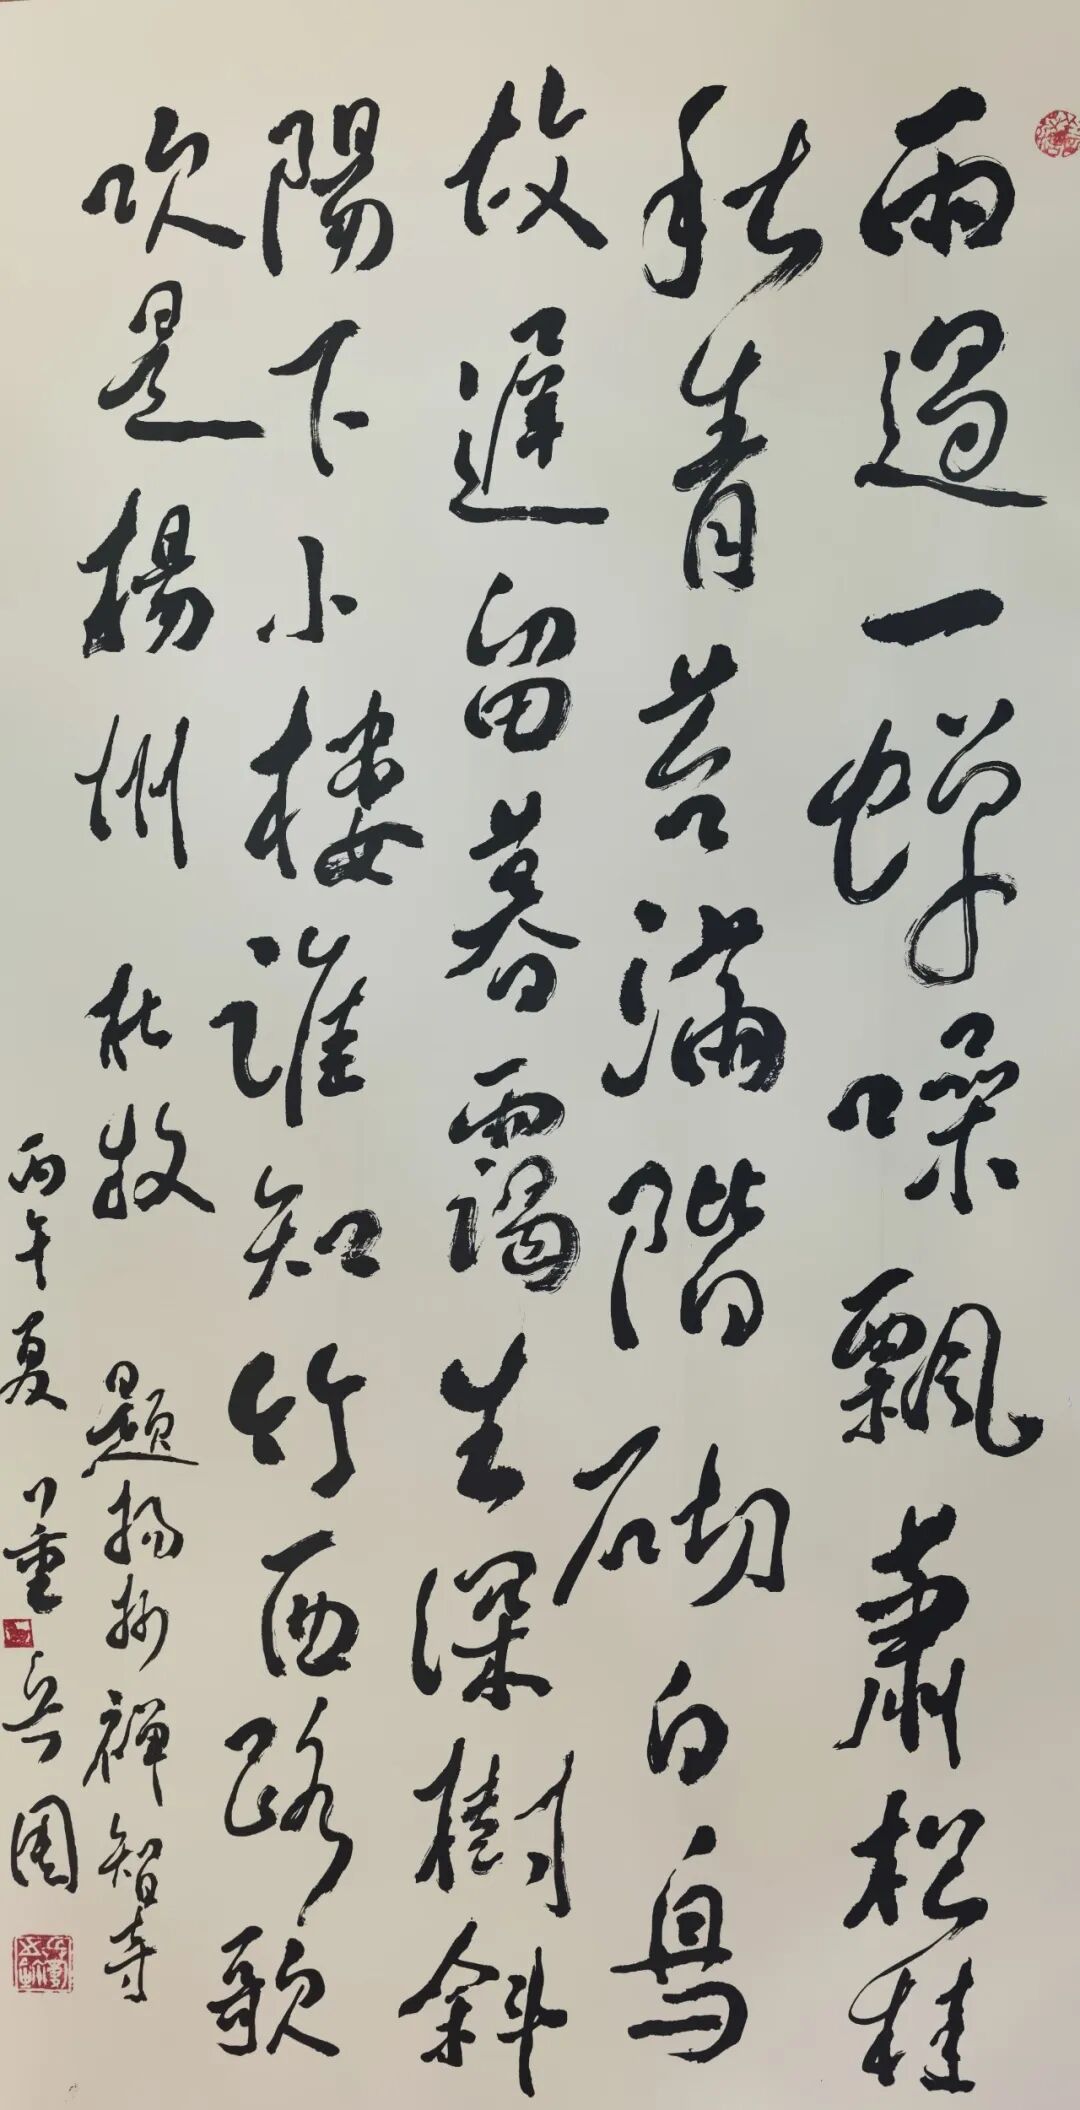 雨過一蟬噪飄蕭松桂
秋青苔滿階砌白鳥
故遲留暮靄生深樹斜
陽下小樓誰知竹西路歌
吹是楊州 杜牧 題揚州禪智寺
丙午夏 董岳圍